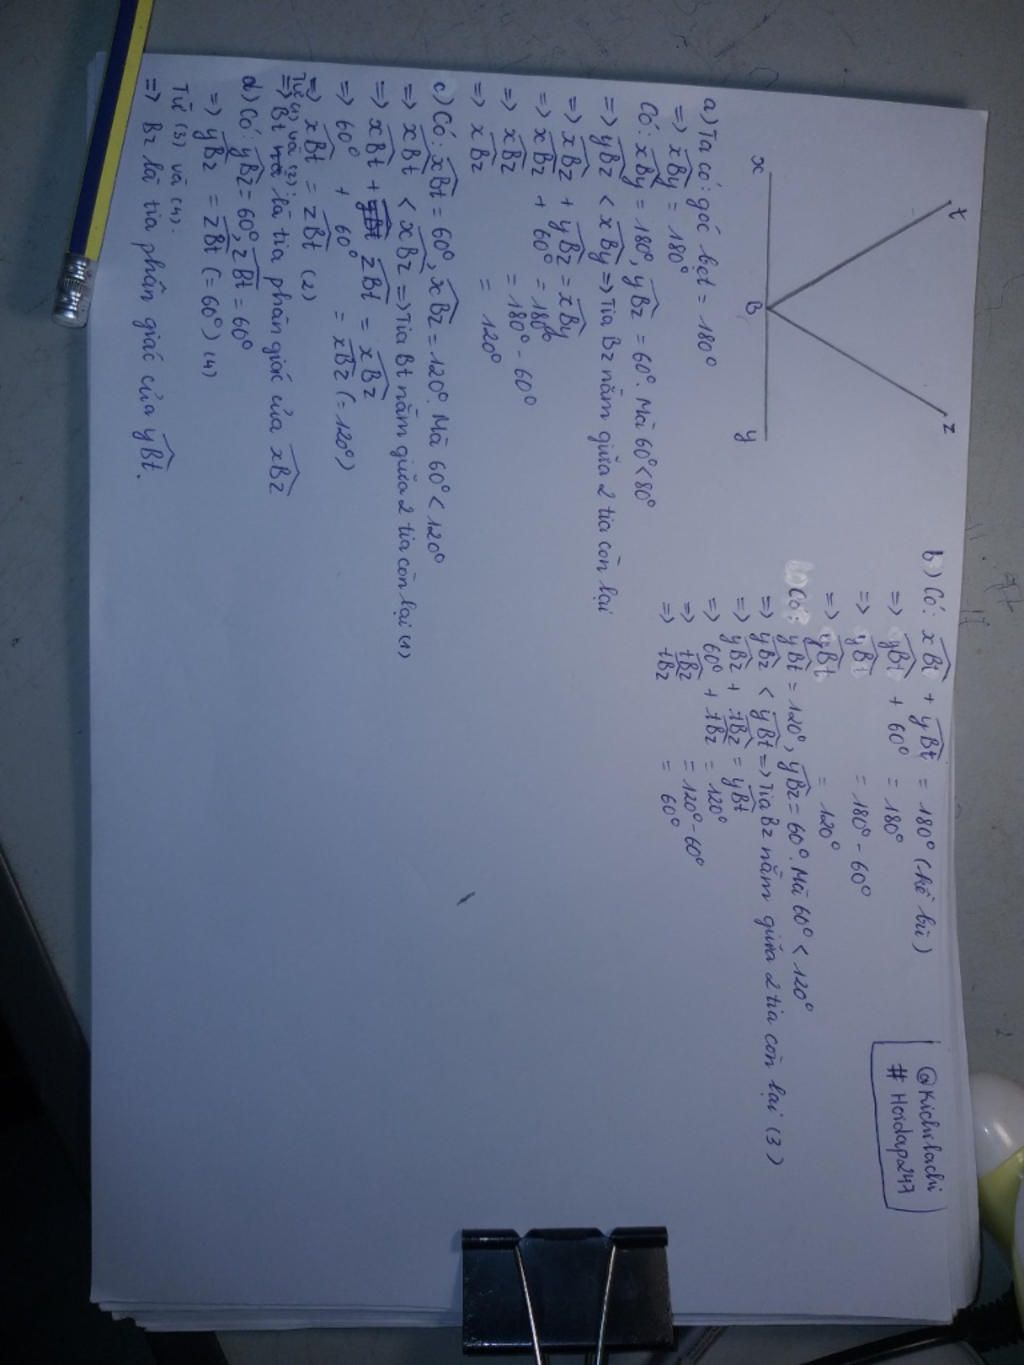 t
z
x
B
y
a) Ta có: góc bẹt = 180°
=> xBy = 180°
Có: xBy = 180°, yBz = 60°. Mà 60° < 80°
=> yBz < xBy => Tia Bz nằm giữa 2 tia còn lại
=> xBz + yBz = xBy
=> xBz + 60° = 180°
=> xBz = 180° - 60°
=> xBz = 120°
c) Có: xBt = 60°, xBz = 120°. Mà 60° < 120°
=> xBt < xBz => Tia Bt nằm giữa 2 tia còn lại (1)
=> xBt + zBt = xBz
=> 60° + 60° = xBz (= 120°)
=> xBt = zBt (2)
Từ (1) và (2):
=> Bt là tia phân giác của xBz
d) Có: yBz = 60°, zBt = 60°
=> yBz = zBt (= 60°) (4)
Từ (3) và (4):
=> Bz là tia phân giác của yBt.
b) Có: xBt + yBt = 180° (kề bù)
=> yBt + 60° = 180°
=> yBt = 180° - 60°
=> yBt = 120°
Có: yBt = 120°, yBz = 60°. Mà 60° < 120°
=> yBz < yBt => Tia Bz nằm giữa 2 tia còn lại (3)
=> yBz + tBz = yBt
=> 60° + tBz = 120°
=> tBz = 120° - 60°
=> tBz = 60°
# Hoidap247